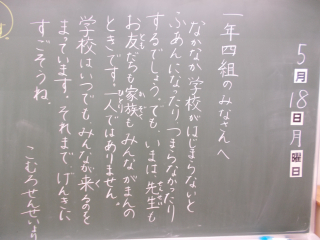 5月18日月曜日
一年四組のみなさんへ
なかなか学校がはじまらないと
ふあんになったりつまらなかったり
するでしょう。でも、いまは、先生も
お友だちも家族もみんながまんの
ときです。一人ではありません。
学校はいつでもみんなが来るのを
まっています。それまでげんきに
すごそうね。
こむろせんせいより